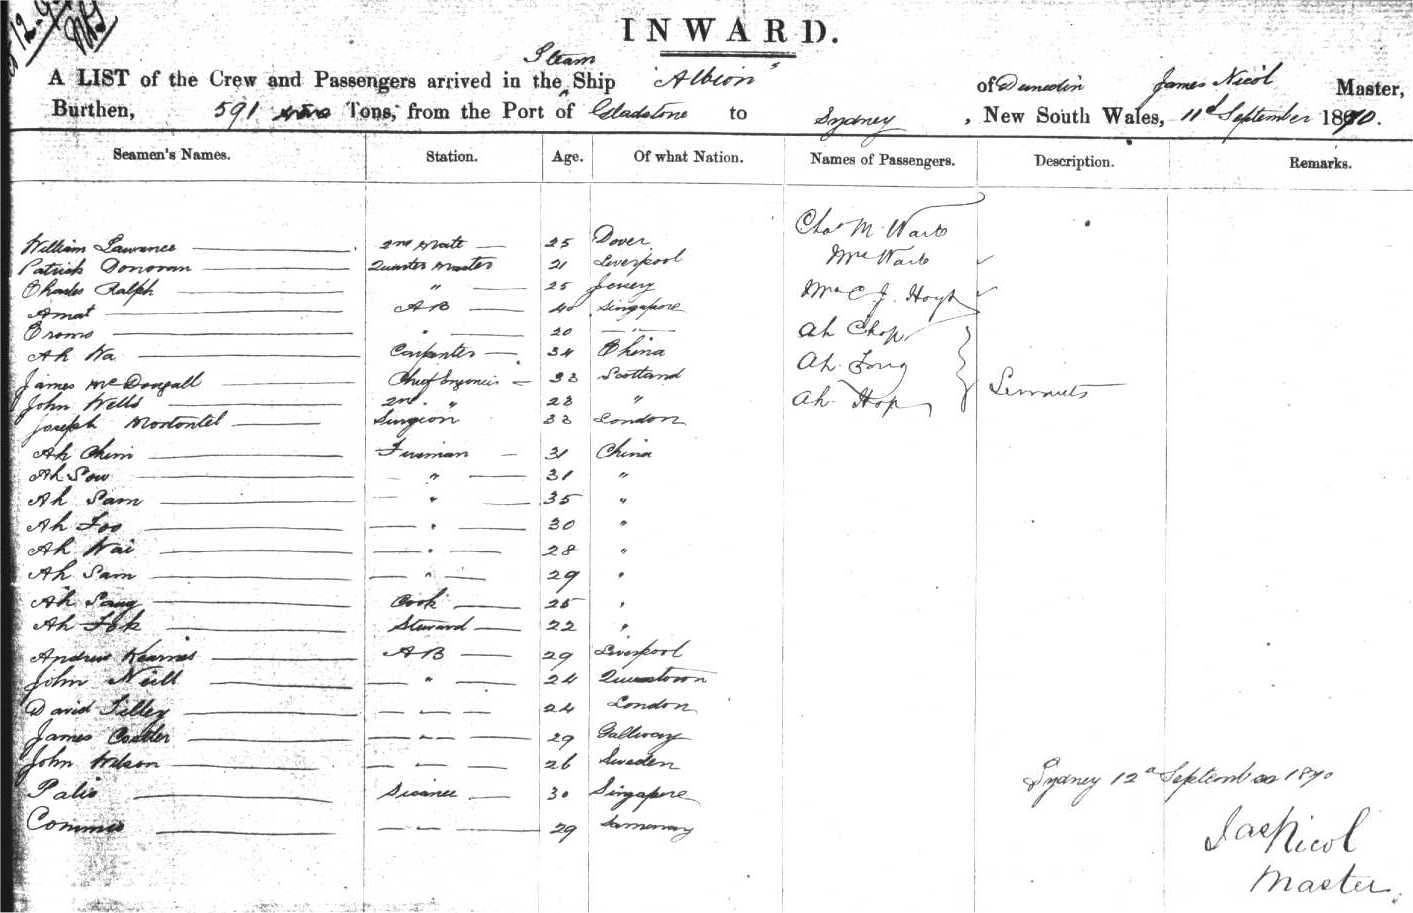 INWARD.
A LIST of the Crew and Passengers arrived in the Steam Ship "Albion" of Dunedin James Nicol Master,
Burthen, 591 Tons, from the Port of Gladstone to Sydney, New South Wales, 11th September 1870.
Seamen's Names. Station. Age. Of what Nation. Names of Passengers. Description. Remarks.
Chas M. Ward
William Lawrence 2nd Mate 25 Dover
Mrs Ward
Patrick Donovan Quarter Master 21 Liverpool
Charles Ralph " 25 Jersey
Mrs C J. Hoyt
Amat AB 40 Singapore
" 20 "
Ah Chop
Ah Wa Carpenter 34 China
Ah Fong
James McDougall Chief Engineer 33 Scotland
Servants
John Wells 2nd " 23 "
Ah Hop
Joseph Surgeon 33 London
Ah Chim Fireman 31 China
Ah Sow " 31 "
Ah Sam " 35 "
Ah Foo " 30 "
Ah Wai " 28 "
Ah Sam " 29 "
Ah Sang Cook 25 "
Ah Fok Steward 22 "
Andrew Kearns AB 29 Liverpool
John Neill " 24 Queenstown
David Tilley " 24 London
James Costler " 29 Gallway
John Wilson " 26 Sweden
Sydney 12th September 1870
Palie 30 Singapore
" 29
Jas Nicol
Master